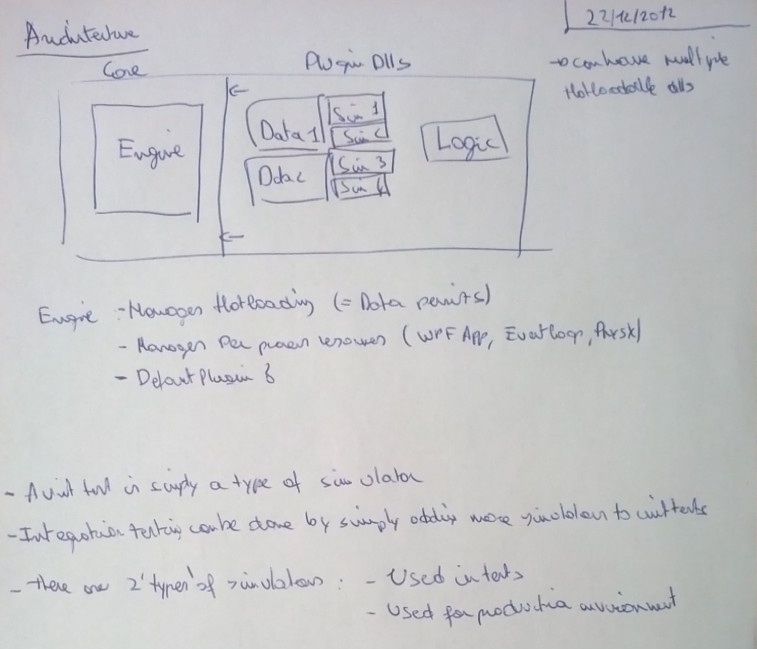 22/12/2012
Architecture
Core
Plugin Dlls
-> can have multiple
Hotloadable dlls
Engine
Data 1
Sim 1
Sim 2
Data 2
Sim 3
Sim 4
Logic
Engine - Manages Hotloading (= Data permits)
- Manages Per process resources (WPF App, Event loop,
- Default Plugin
- A unit test is simply a type of simulator
- Integration testing can be done by simply adding more simulators to unit tests
- There are 2 'types' of simulators : - Used in tests
- Used for production environment